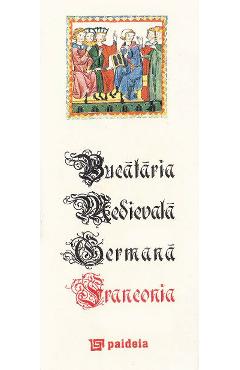 Bucătăria
Medievală
Germană
Franconia
paideia